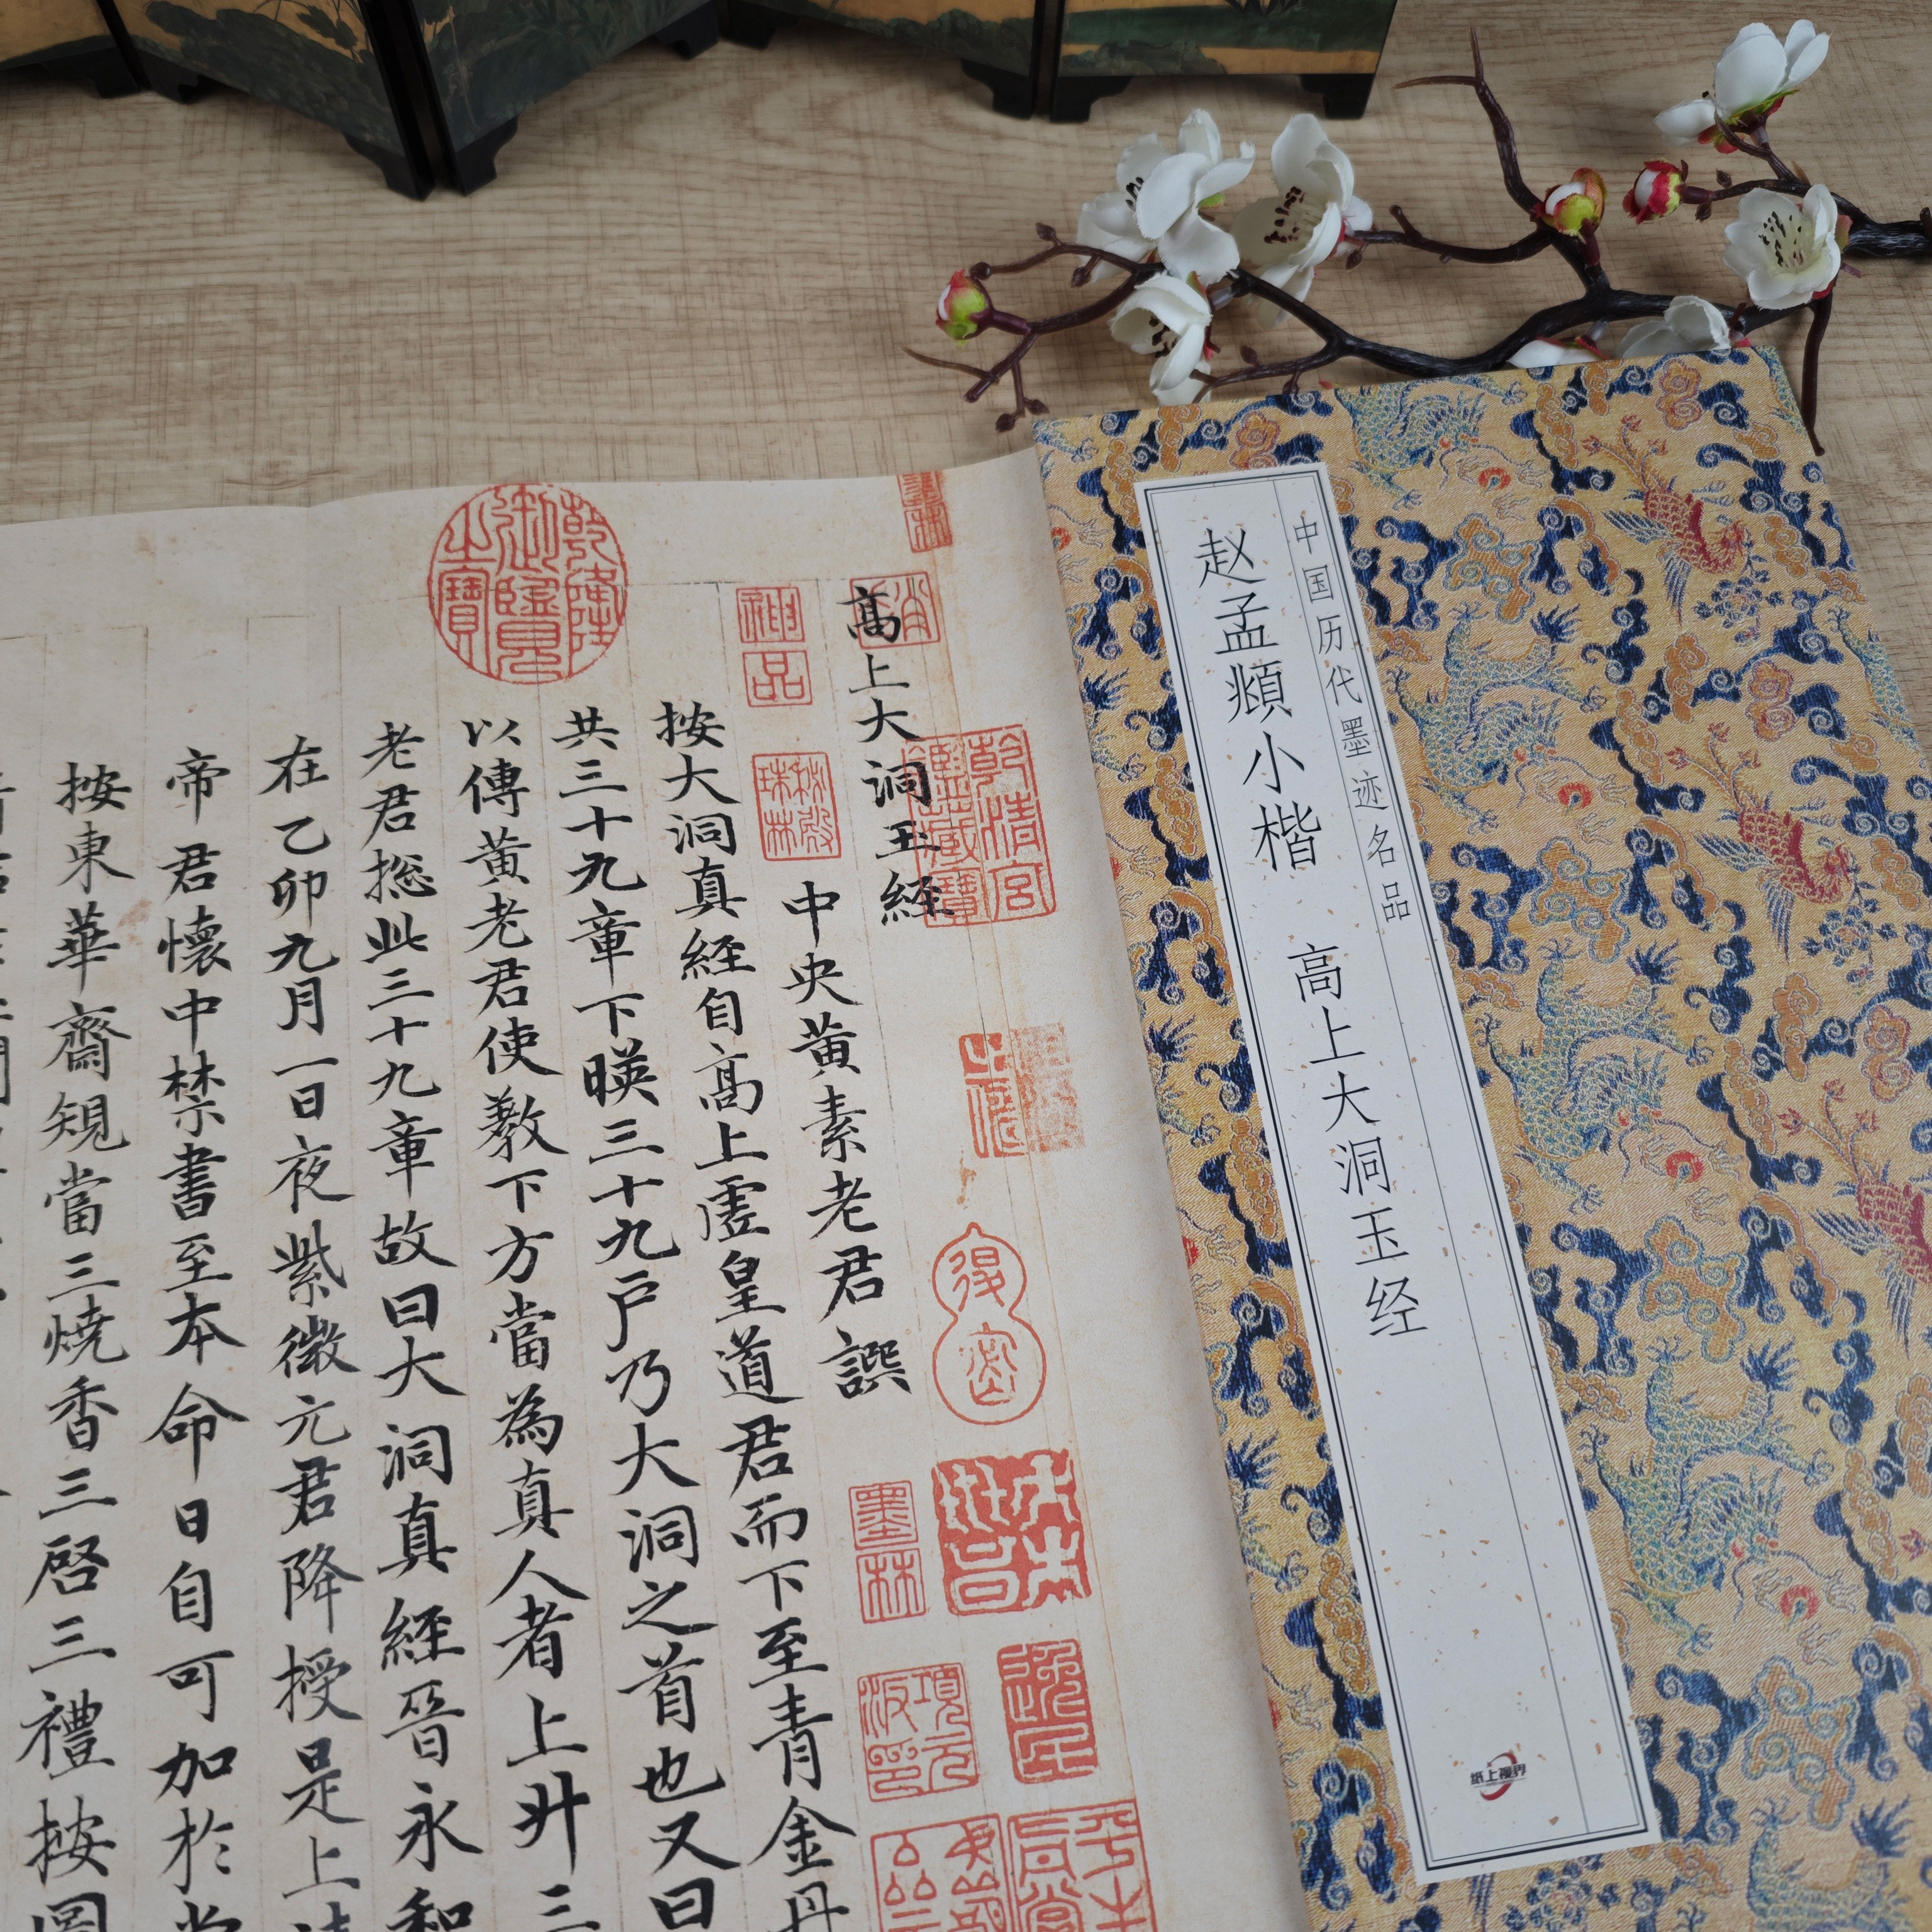 中国历代墨迹名品
赵孟頫小楷 高上大洞玉经
纸上视界
高上大洞玉經
中央黄素老君譔
按大洞真經自高上虛皇道君而下至青金丹
共三十九章下暎三十九戶乃大洞之首也又曰
以傳黄老君使教下方當為真人者上升三
老君揔此三十九章故曰大洞真經晉永和
在乙卯九月一日夜紫微元君降授是上
帝君懷中禁書至本命日自可加於
按東華齋規當三燒香三啓三禮按圖
乾隆御覽之寶
乾清宮鑒藏寶
神品
墨林
項元汴印